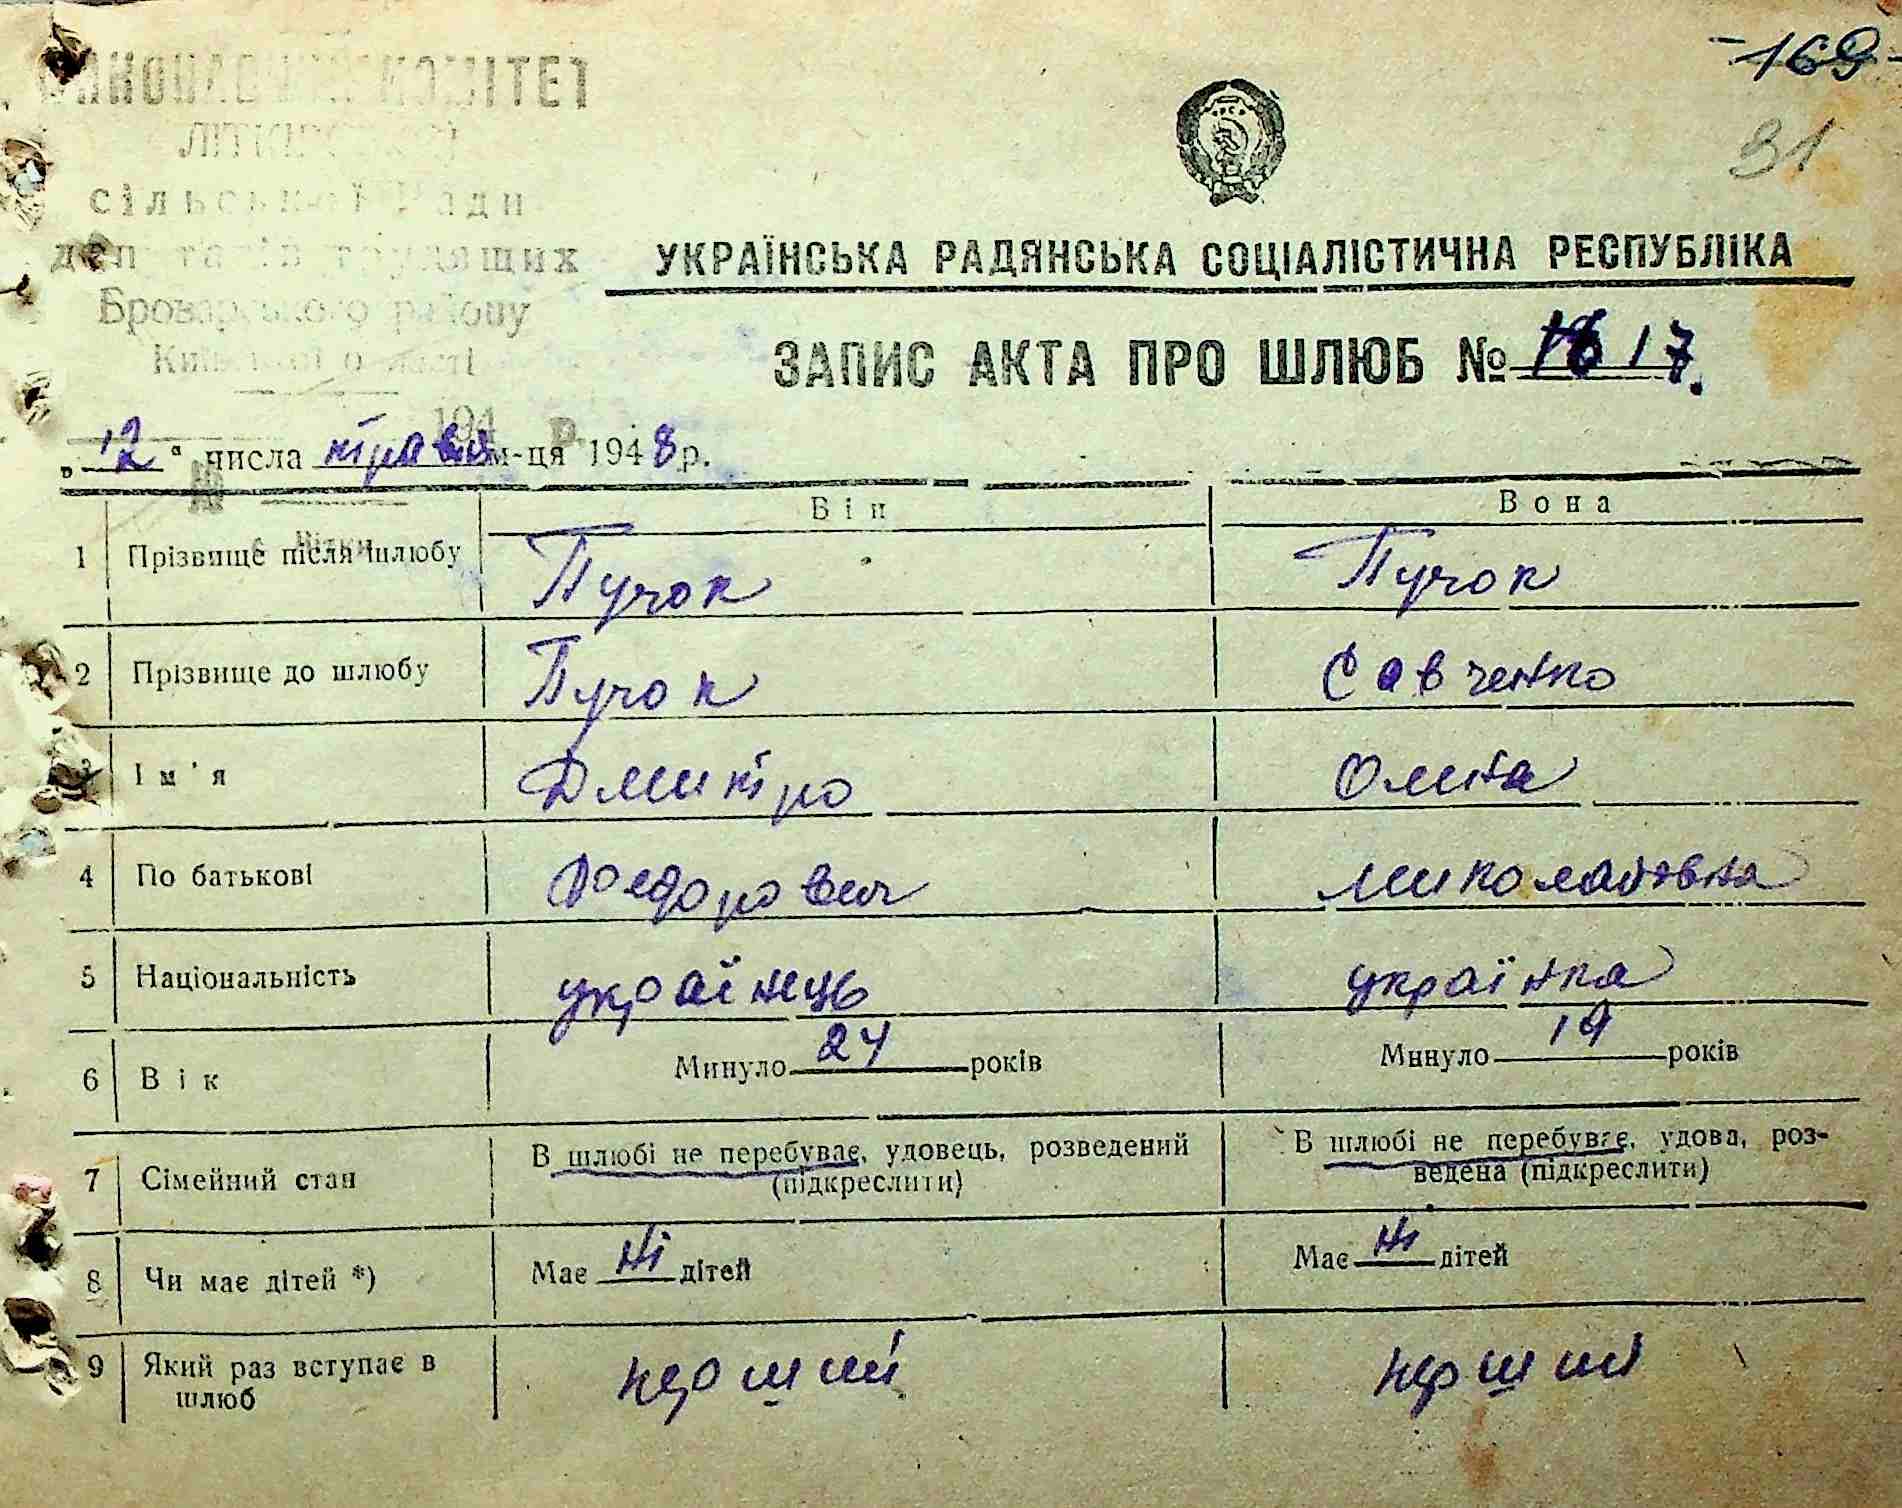 -169-
31
КОМІТЕТ
сільської Ради
депутатів трудящих
Броварського району
Київської області
УКРАЇНСЬКА РАДЯНСЬКА СОЦІАЛІСТИЧНА РЕСПУБЛІКА
ЗАПИС АКТА ПРО ШЛЮБ № 17.
194 р.
„12" числа травня м-ця 1948 р.
Він Вона
1 Прізвище після шлюбу Пучок Пучок
2 Прізвище до шлюбу Пучок Савченко
3 Ім'я Дмитро
4 По батькові Федорович Миколаївна
5 Національність українець українка
6 Вік Минуло 24 років Минуло 19 років
7 Сімейний стан В шлюбі не перебуває, удовець, розведений В шлюбі не перебуває, удова, роз-
(підкреслити) ведена (підкреслити)
8 Чи має дітей *) Має ні дітей Має ні дітей
9 Який раз вступає в перший перший
шлюб